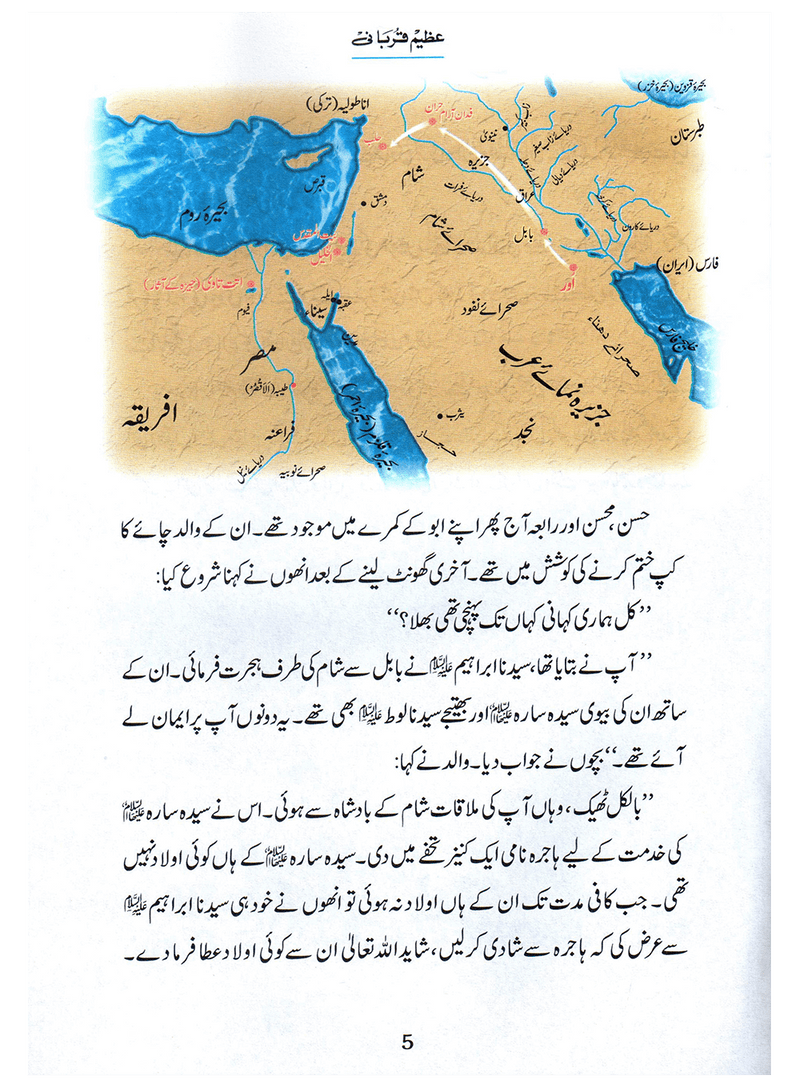 عظیم قربانی
بحیرۂ قزوین (بحیرۂ خزر)
اناطولیہ (ترکی)
حران
فدان آرام
حلب
نینویٰ
دریائے زاب صغیر
طبرستان
جزیرہ
شام
دریائے فرات
دریائے دیالی
عراق
قبرص
دمشق
بحیرۂ روم
صحرائے شام
بابل
دریائے کارون
بیت المقدس
الخلیل
فارس (ایران)
اُور
ایلہ
عقبہ
سیناء
فیوم
صحرائے نفود
صحرائے دھناء
خلیج فارس
مدین
مصر
جزیرہ نمائے عرب
طیبہ (الاقصُر)
بحیرۂ قلزم (بحیرۂ احمر)
افریقہ
فراعنہ
یثرب
نجد
حجاز
صحرائے نوبیہ
دریائے نیل
حسن، محسن اور رابعہ آج پھر اپنے ابو کے کمرے میں موجود تھے۔ ان کے والد چائے کا
کپ ختم کرنے کی کوشش میں تھے۔ آخری گھونٹ لینے کے بعد انھوں نے کہنا شروع کیا:
’’کل ہماری کہانی کہاں تک پہنچی تھی بھلا؟‘‘
’’آپ نے بتایا تھا، سیدنا ابراہیم علیہ السلام نے بابل سے شام کی طرف ہجرت فرمائی۔ ان کے
ساتھ ان کی بیوی سیدہ سارہ علیہا السلام اور بھتیجے سیدنا لوط علیہ السلام بھی تھے۔ یہ دونوں آپ پر ایمان لے
آئے تھے۔‘‘ بچوں نے جواب دیا۔ والد نے کہا:
’’بالکل ٹھیک، وہاں آپ کی ملاقات شام کے بادشاہ سے ہوئی۔ اس نے سیدہ سارہ علیہا السلام
کی خدمت کے لیے ہاجرہ نامی ایک کنیز تحفے میں دی۔ سیدہ سارہ علیہا السلام کے ہاں کوئی اولاد نہیں
تھی۔ جب کافی مدت تک ان کے ہاں اولاد نہ ہوئی تو انھوں نے خود ہی سیدنا ابراہیم علیہ السلام
سے عرض کی کہ ہاجرہ سے شادی کرلیں، شاید اللہ تعالیٰ ان سے کوئی اولاد عطا فرما دے۔
5